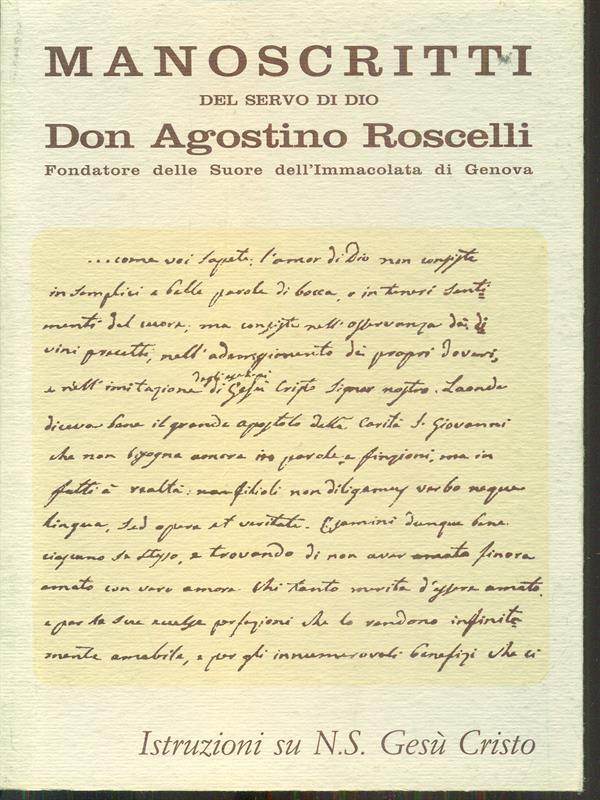 MANOSCRITTI
DEL SERVO DI DIO
Don Agostino Roscelli
Fondatore delle Suore dell'Immacolata di Genova
...come voi sapete; l'amor di Dio non consiste
in semplici e belle parole di bocca, o in teneri senti=
menti del cuore; ma consiste nell'osservanza dei di
vini precetti, nell'adempimento dei propri doveri,
e nell'imitazione di Gesù Cristo Signor nostro. Laonde
diceva bene il grande apostolo della Carità S. Giovanni
che non bisogna amare in parole, e finzioni, ma in
fatti e realtà: filioli non diligamus verbo neque
lingua, sed opere et veritate. Esamini dunque bene
ciascuno se stesso, e trovando di non aver amato finora
amato con vero amore chi tanto merita d'essere amato,
e per le sue eccelse perfezioni che lo rendono infinita
mente amabile, e per gli innumerevoli benefizi che ci
Istruzioni su N.S. Gesù Cristo